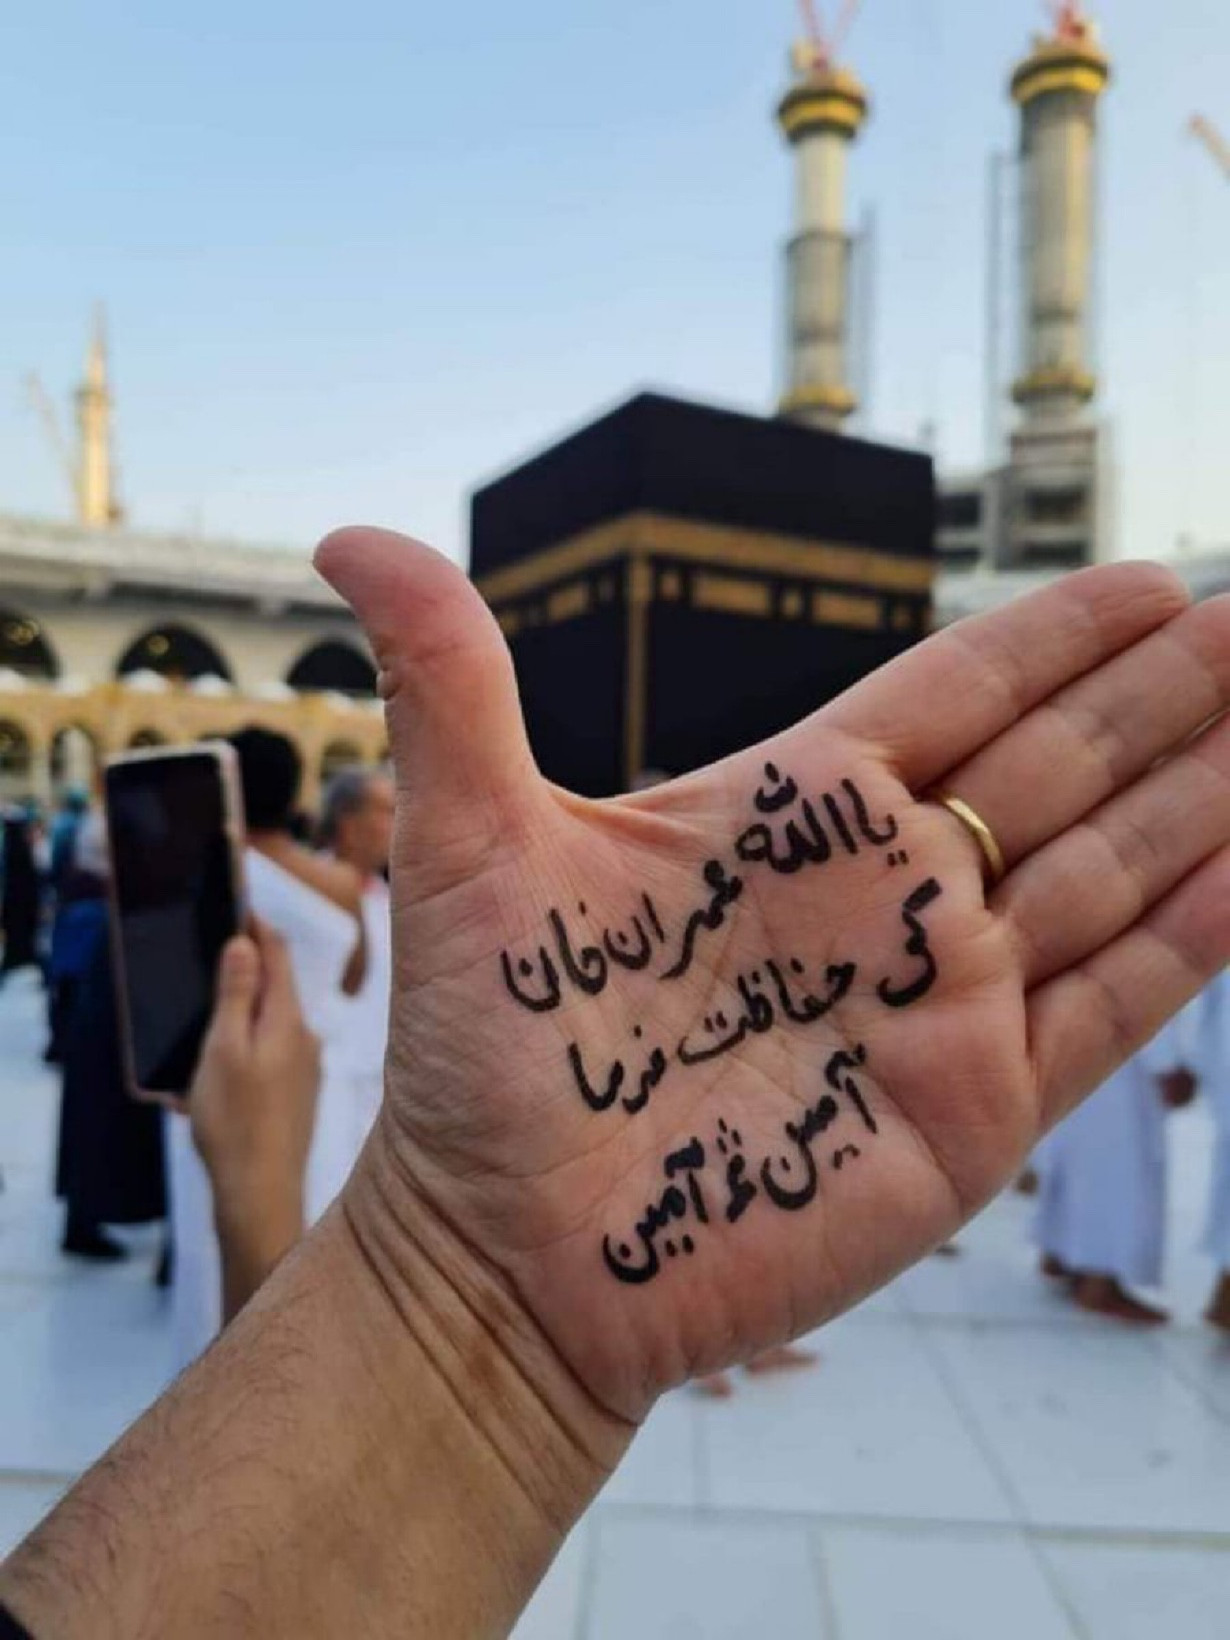 یا اللہ عمران خان
کو حفاظت فرما
آمین ثم آمین